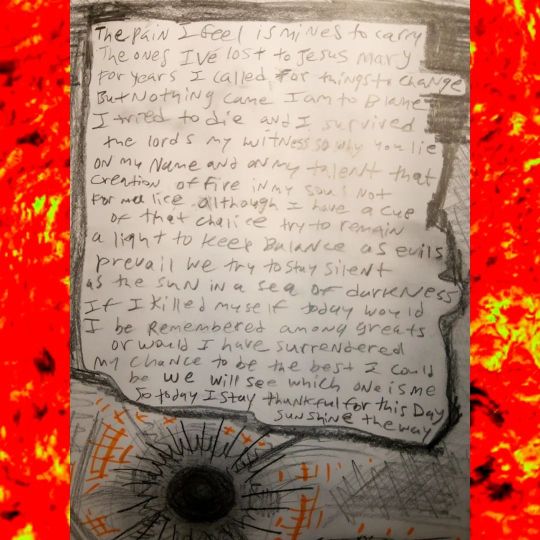 The pain I feel is mines to carry
The ones I've lost to Jesus Mary
For years I called for things to change
But Nothing came I am to Blame
I tried to die and I survived
the lords my witness so why you lie
on my Name and on my talent that
creation of fire in my soul Not
For malice although I have a cue
of that chalice try to remain
a light to keep Balance as evils
prevail we try to stay silent
as the sun in a sea of darkness
If I killed myself today would
I be Remembered among greats
or would I have surrendered
my chance to be the best I could
be we will see which one is me
so today I stay thankful for this Day
sunshine the way